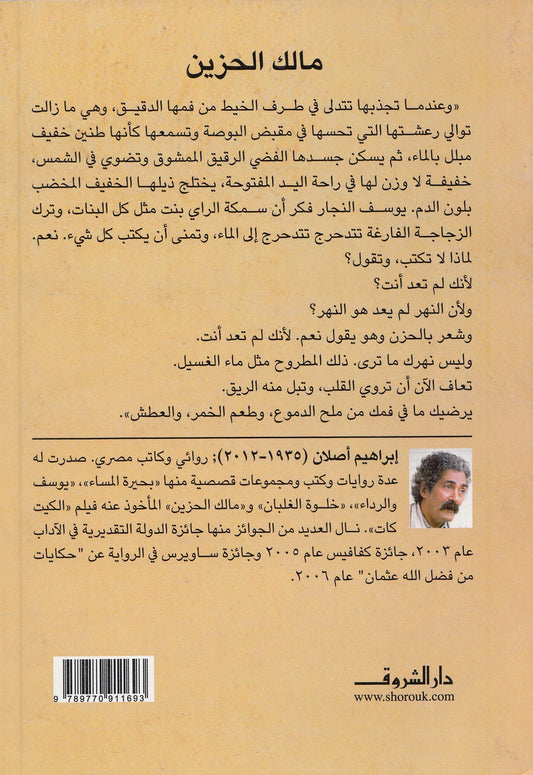 مالك الحزين
«وعندما تجذبها تتدلى في طرف الخيط من فمها الدقيق، وهي ما زالت
توالي رعشتها التي تحسها في مقبض البوصة وتسمعها كأنها طنين خفيف
مبلل بالماء، ثم يسكن جسدها الفضي الرقيق الممشوق وتضوي في الشمس،
خفيفة لا وزن لها في راحة اليد المفتوحة، يختلج ذيلها الخفيف المخضب
بلون الدم. يوسف النجار فكر أن سمكة الراي بنت مثل كل البنات، وترك
الزجاجة الفارغة تتدحرج تتدحرج إلى الماء، وتمنى أن يكتب كل شيء. نعم.
لماذا لا تكتب، وتقول؟
لأنك لم تعد أنت؟
ولأن النهر لم يعد هو النهر؟
وشعر بالحزن وهو يقول نعم. لأنك لم تعد أنت.
وليس نهرك ما ترى. ذلك المطروح مثل ماء الغسيل.
تعاف الآن أن تروي القلب، وتبل منه الريق.
يرضيك ما في فمك من ملح الدموع، وطعم الخمر، والعطش».
إبراهيم أصلان (١٩٣٥-٢٠١٢)؛ روائي وكاتب مصري. صدرت له
عدة روايات وكتب ومجموعات قصصية منها «بحيرة المساء»، «يوسف
والرداء»، «خلوة الغلبان» و«مالك الحزين» المأخوذ عنه فيلم «الكيت
كات». نال العديد من الجوائز منها جائزة الدولة التقديرية في الآداب
عام ٢٠٠٣، جائزة كفافيس عام ٢٠٠٥ وجائزة ساويرس في الرواية عن "حكايات
من فضل الله عثمان" عام ٢٠٠٦.
دار الشروق
www.shorouk.com
9 789770 911693